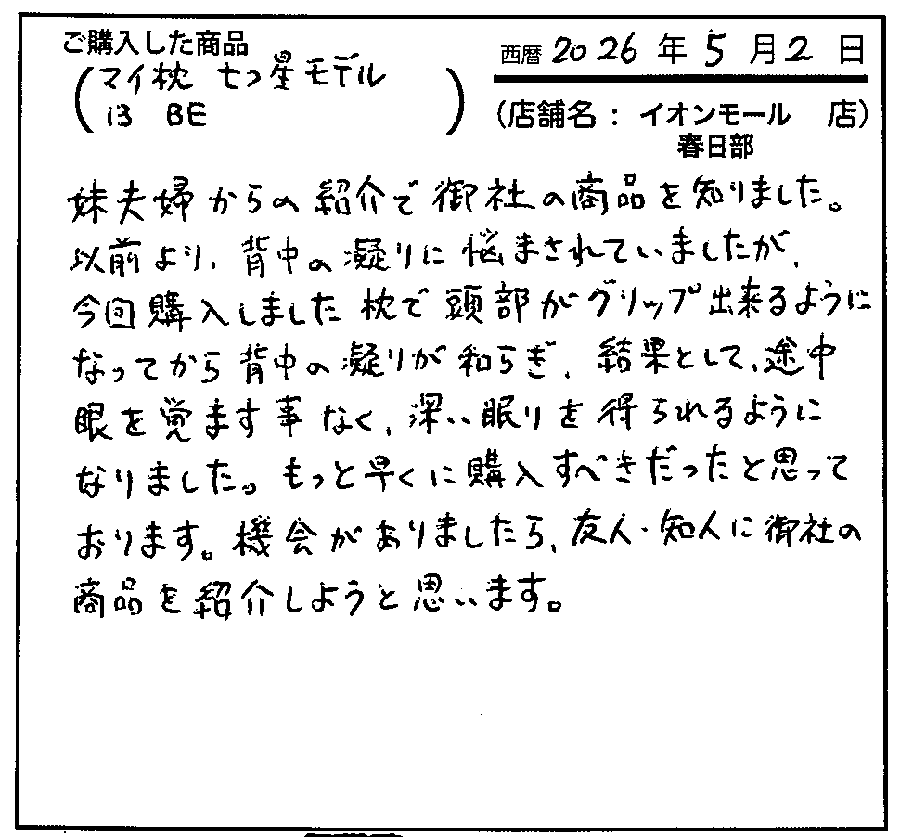 ご購入した商品
西暦 2026 年 5 月 2 日
(マイ枕 七つ星モデル
13 BE )
(店舗名： イオンモール 店)
春日部
妹夫婦からの紹介で御社の商品を知りました。
以前より、背中の凝りに悩まされていましたが、
今回購入しました枕で頭部がグリップ出来るように
なってから背中の凝りが和らぎ、結果として、途中
眼を覚ます事なく、深い眠りを得られるように
なりました。もっと早くに購入すべきだったと思って
おります。機会がありましたら、友人・知人に御社の
商品を紹介しようと思います。